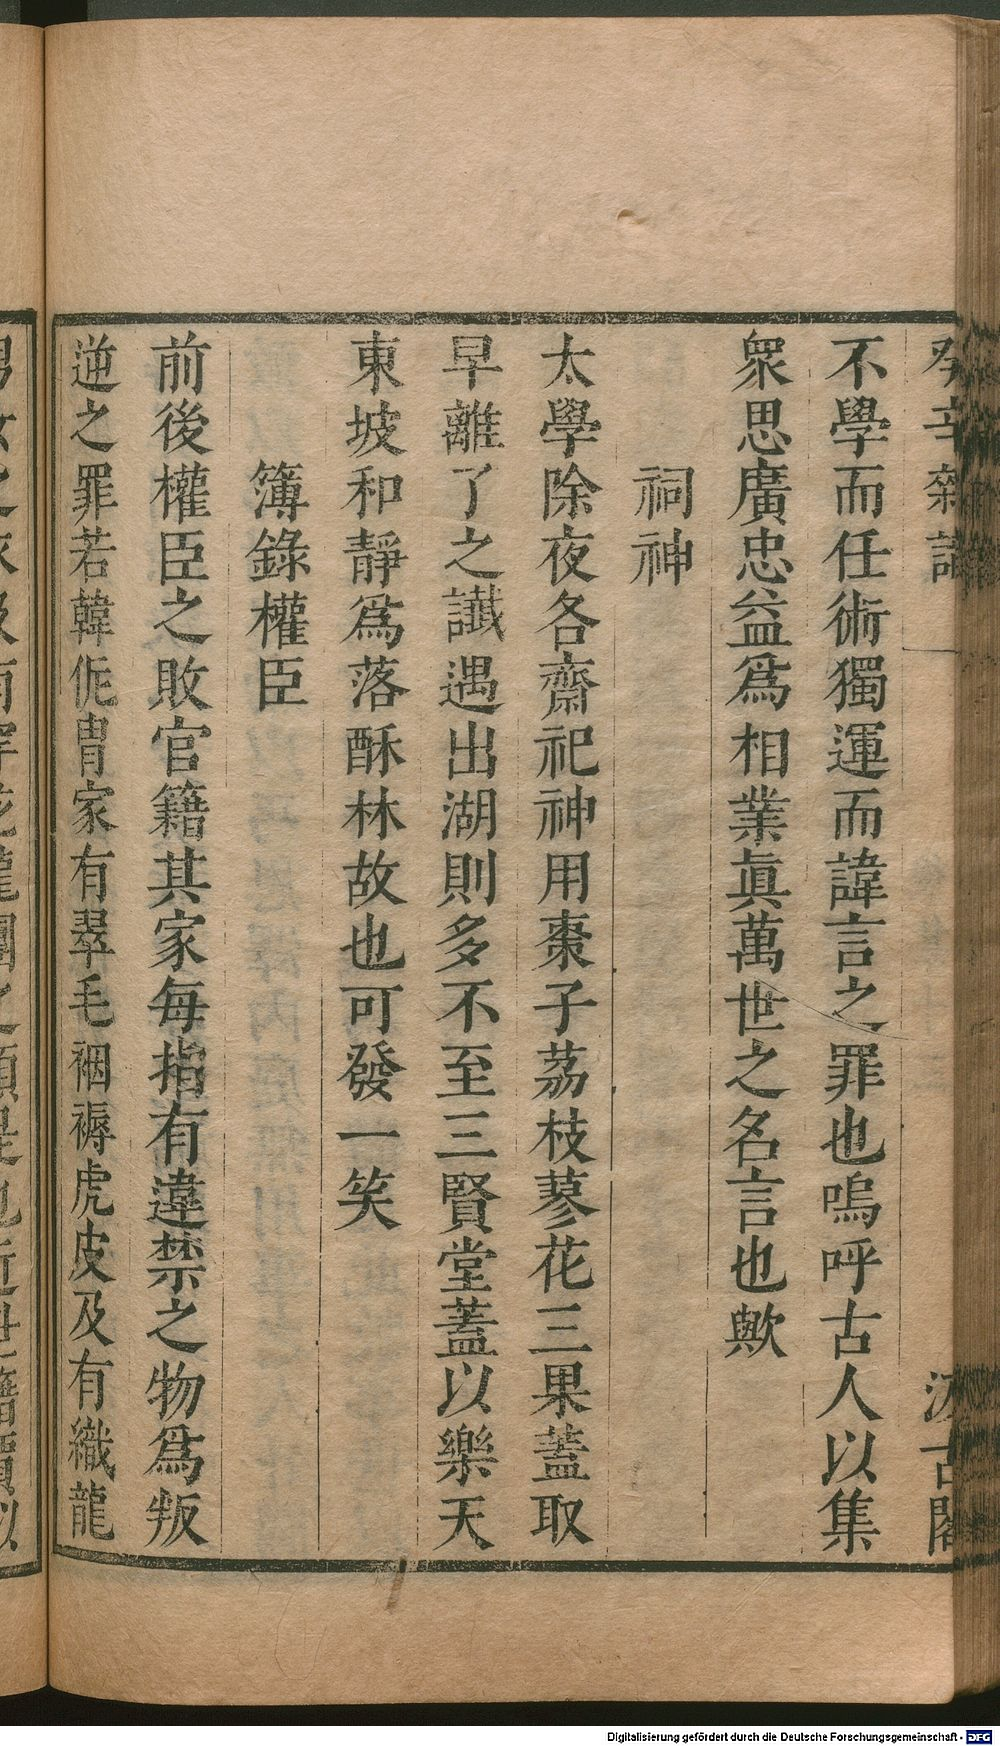 癸辛雜識 汲古閣
不學而任術獨運而諱言之罪也嗚呼古人以集
衆思廣忠益爲相業眞萬世之名言也歟
祠神
太學除夜各齋祀神用棗子荔枝蓼花三果蓋取
早離了之讖遇出湖則多不至三賢堂蓋以樂天
東坡和靜爲落酥林故也可發一笑
簿錄權臣
前後權臣之敗官籍其家每指有違禁之物爲叛
逆之罪若韓侂冑家有翠毛裀褥虎皮及有織龍
男女之衣及有穿花龍團之類是也近世籍賈似
Digitalisierung gefördert durch die Deutsche Forschungsgemeinschaft - DFG